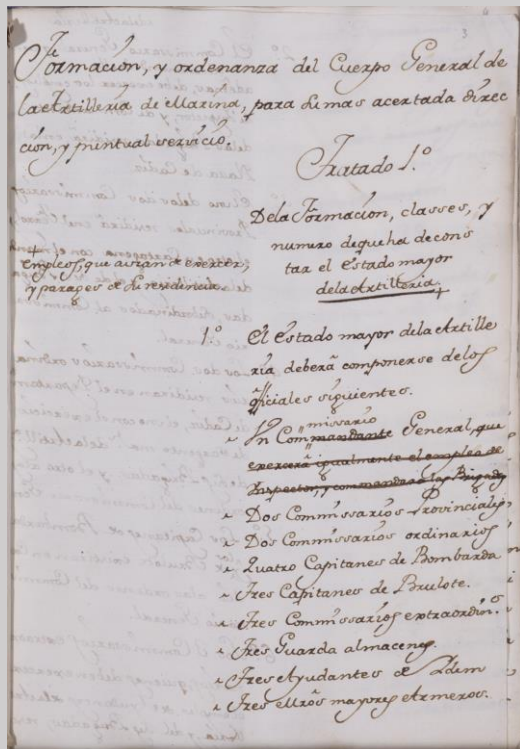 Formacion, y ordenanza del Cuerpo General de
la Artilleria de Marina, para su mas acertada direc
cion, y puntual servicio.
Tratado 1.º
Dela Formacion, classes, y
numero deque ha de cons
tar el estado mayor
dela Artilleria,
empleos, que auran de exercer,
y parages de su residencia.
1.º El Estado mayor dela Artille
ria deberà componerse delos
oficiales siguientes.
missario
Un Commandante General, que
exercerà igualmente el empleo de
Inspector, y commandarà las Brigadas
Dos Commissarios Provinciales
Dos Commissarios ordinarios
Quatro Capitanes de Bombarda
Tres Capitanes de Brulote.
Tres Commissarios extraordin.s
Tres Guarda almacenes.
Tres Ayudantes de Idem
Tres Mros mayores Armeros.